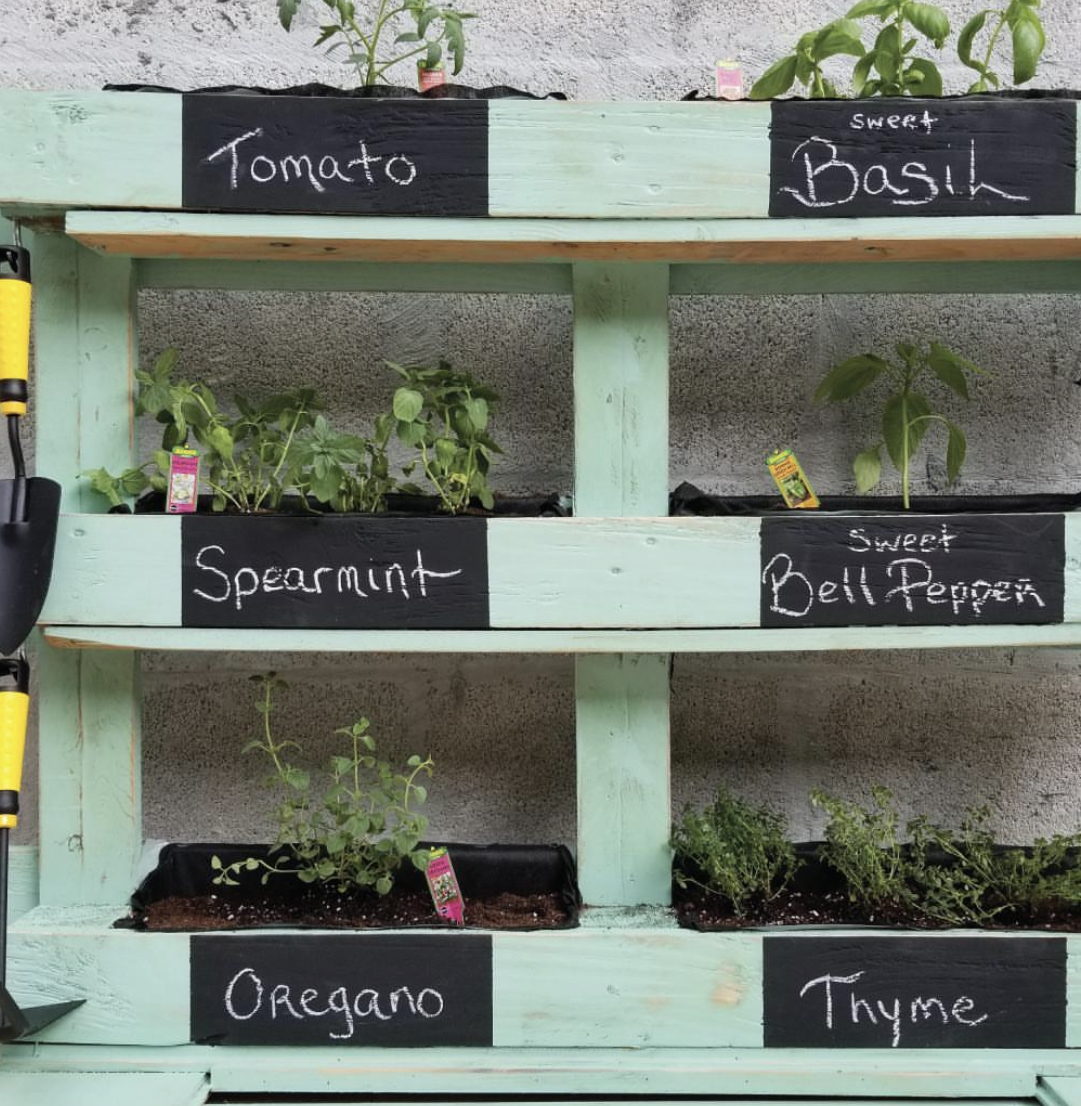 Tomato
sweet
Basil
Spearmint
Sweet
Bell Pepper
Oregano
Thyme